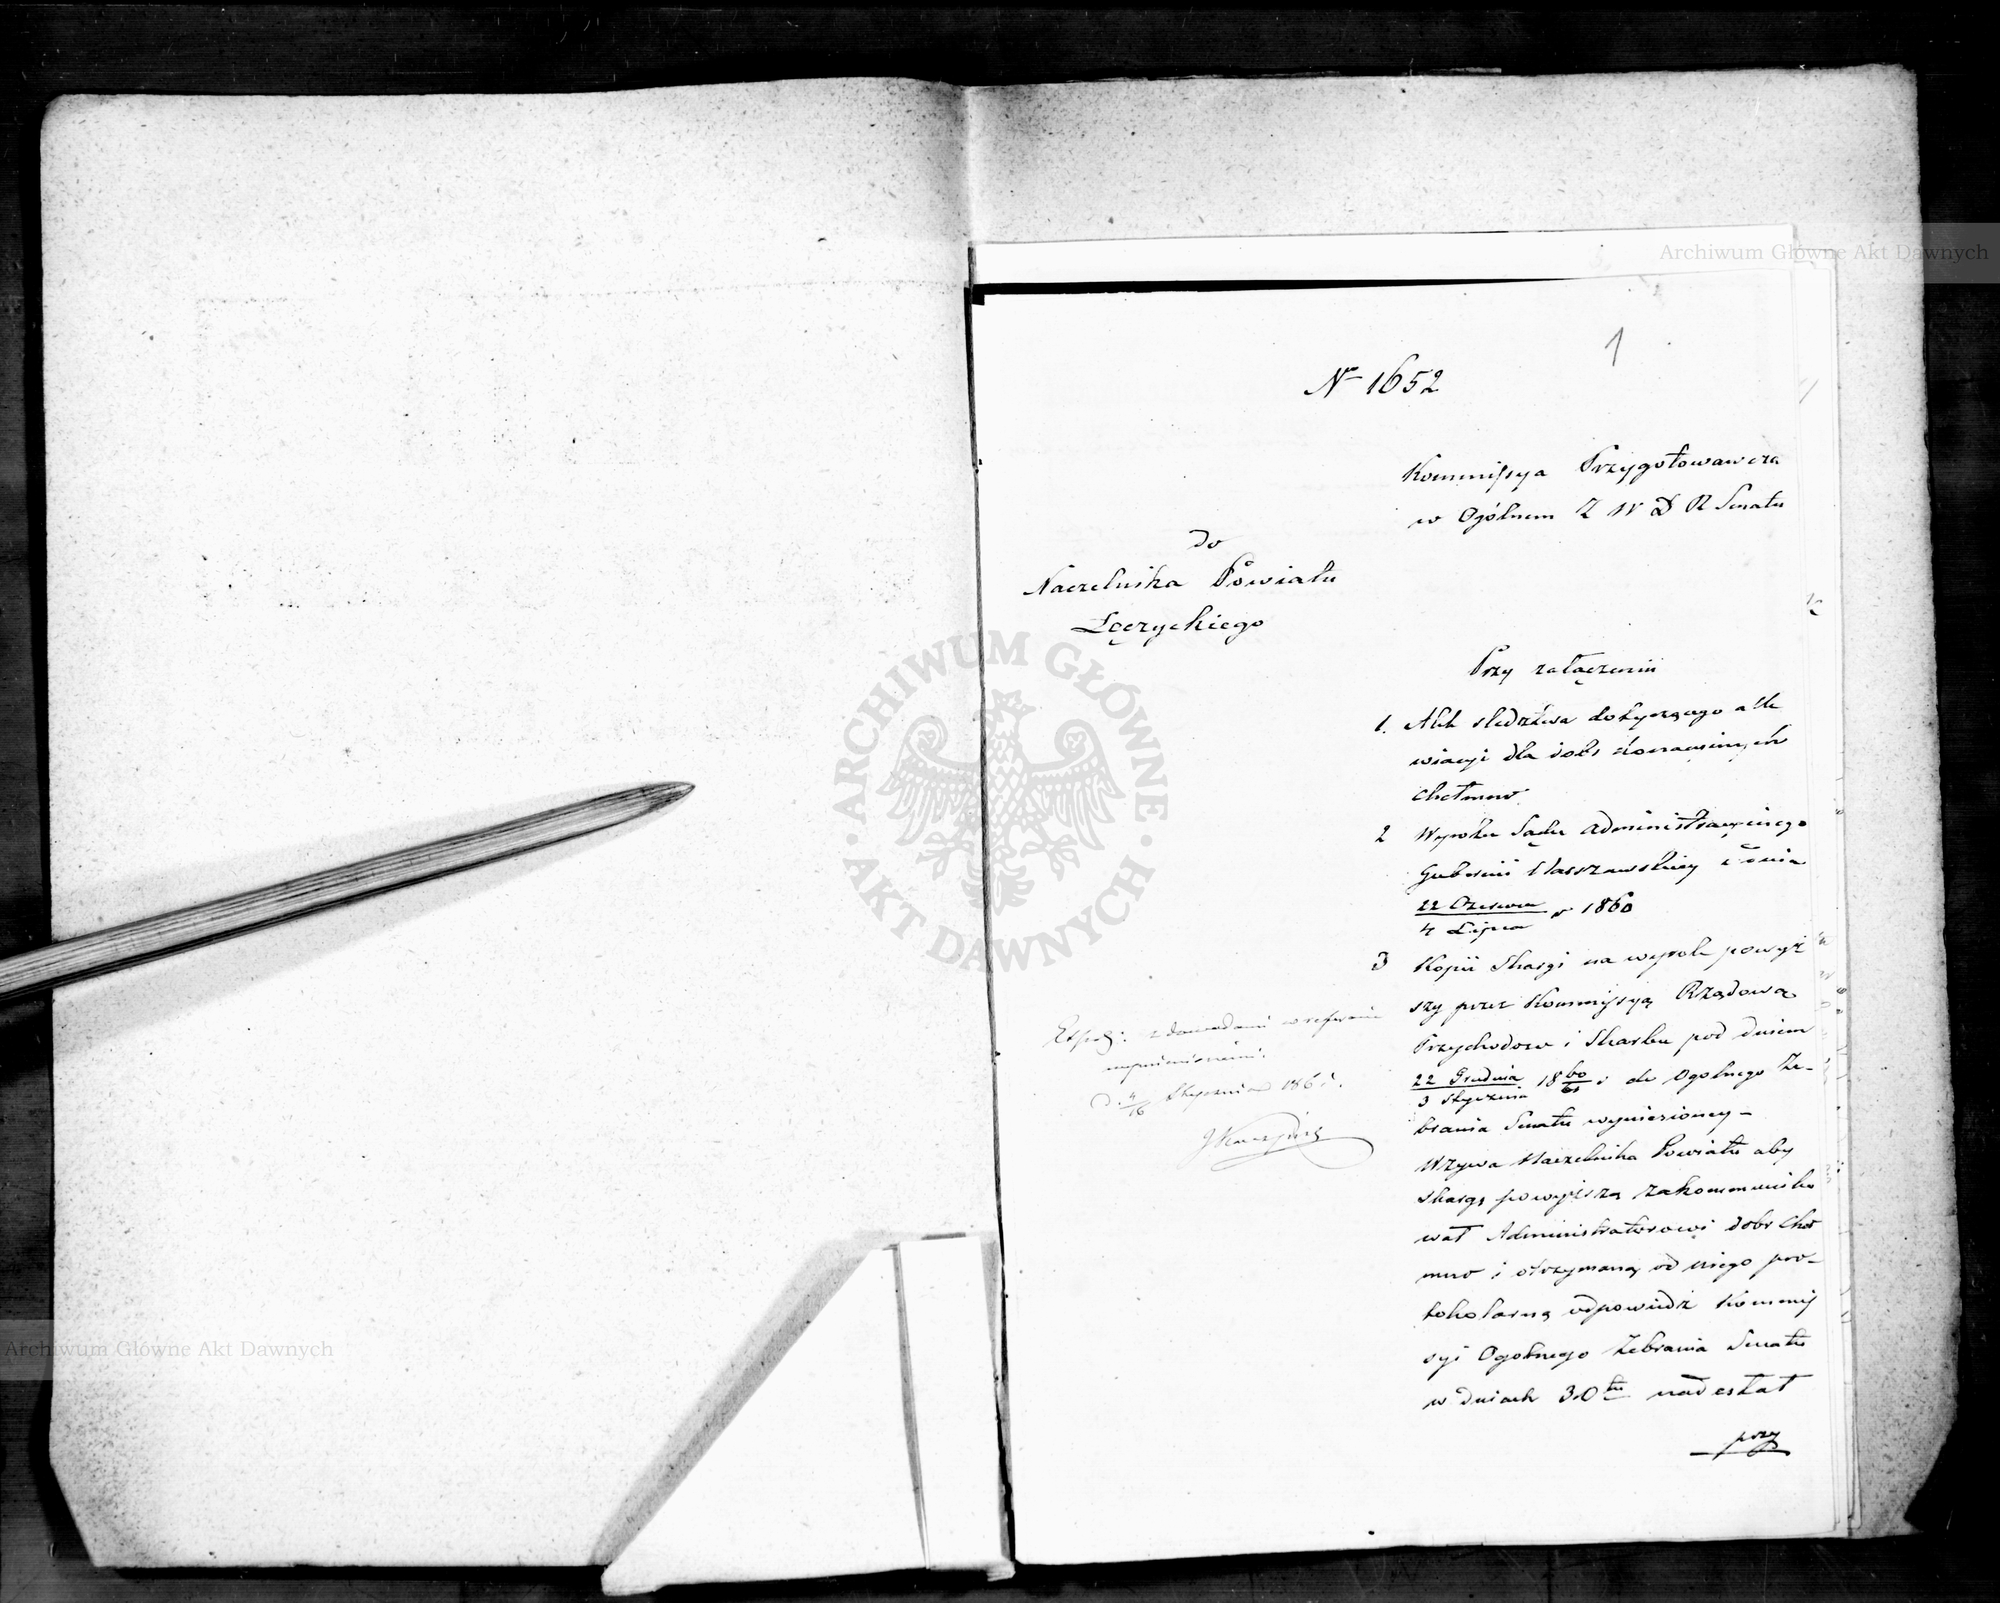 1
Nr 1652
Kommissya Przygotowawcza
w Ogólnem Z W D R Senatu
do
Naczelnika Powiatu
Łęczyckiego
Przy załączeniu
1. Akt sledztwa dotyczącego alle
wiacyi dla dóbr
Chełmno
2 Wyroku Sądu Administracyinego
Gubernii Warszawskiey z dnia
22 Czerwca / 4 Lipca r 1860
3 Kopii Skargi na wyrok powyż
szy przez Kommissyą Rządową
Przychodow i Skarbu pod dniem
22 Grudnia / 3 Stycznia 1860/61 r do Ogolnego Ze-
brania Senatu wyniesioney –
Wzywa Naczelnika Powiatu aby
skargę powyższą zakommuniko
wał Administratorowi dobr Cheł
mno i otrzymaną od niego pro-
tokolarną odpowiedź Kommis
syi Ogolnego Zebrania Senatu
w dniach 30tu nadesłał
przy
z dowodami w referacie
wymienionemi.
d. 4/16 Stycznia 1861 r.
Archiwum Główne Akt Dawnych
ARCHIWUM GŁÓWNE · AKT DAWNYCH ·
Archiwum Główne Akt Dawnych